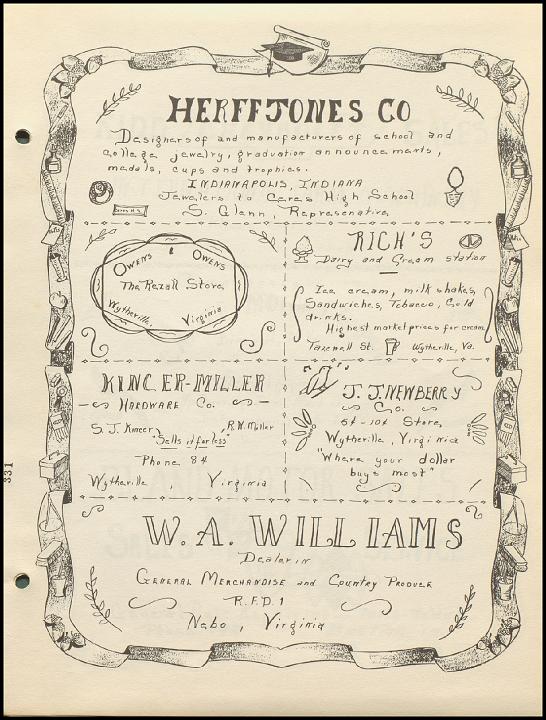 HERFFJONES CO
Designers of and manufacturers of school and
college jewelry, graduation announcements,
medals, cups and trophies.
INDIANAPOLIS, INDIANA
Jewelers to Ceres High School
S. Glenn, Represenative
OWENS & OWENS
The Rexall Store
Wytheville, Virginia
RICH'S
Dairy and Cream station
Ice cream, milk shakes,
Sandwiches, Tobacco, Cold
drinks.
Highest market prices for cream
Tazewell St. Wytheville, Va.
KINCER-MILLER
HARDWARE Co.
S.J. Kincer, R.W. Miller
"Sells it for less"
Phone 84
Wytheville, Virginia
J. J. NEWBERRY
Co.
5¢ - 10¢ Store,
Wytheville, Virginia
"Where your dollar
buys most"
W. A. WILLIAMS
Dealer in
GENERAL MERCHANDISE and COUNTRY PRODUCE
R.F.D. 1
Nebo, Virginia
331